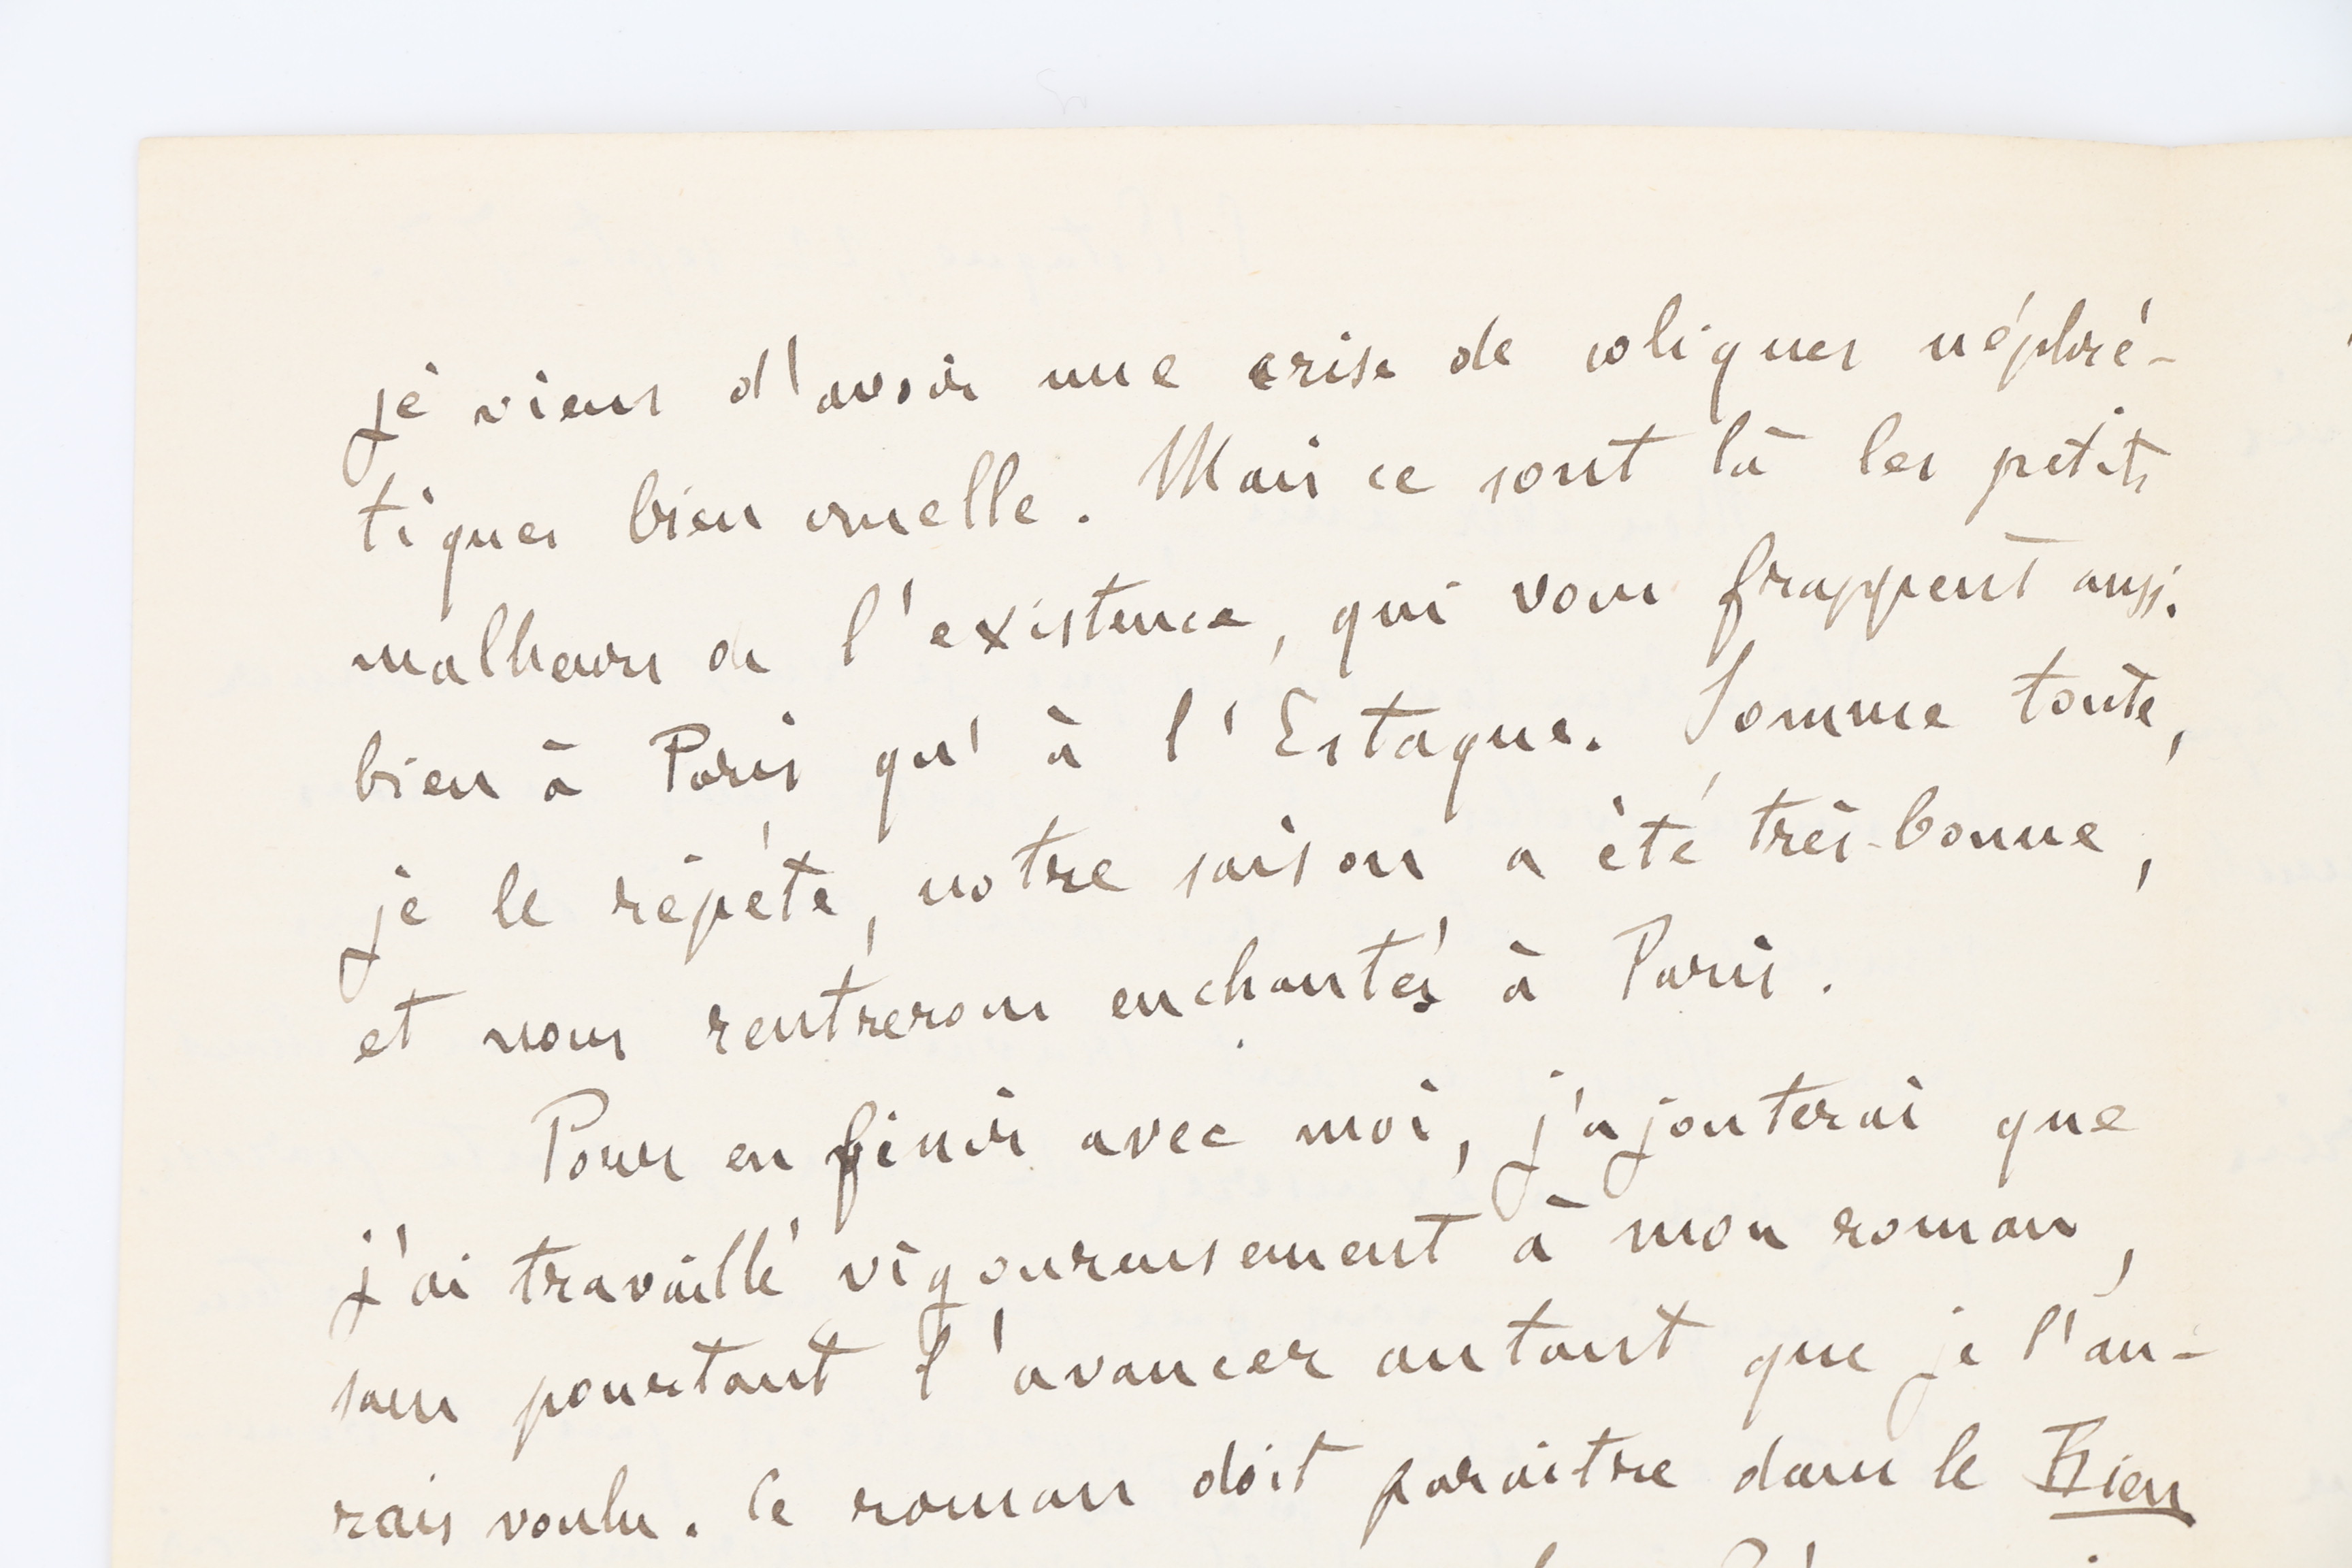 je viens d'avoir une crise de coliques néphré-
tiques bien cruelle. Mais ce sont là les petits
malheurs de l'existence, qui vous frappent aussi
bien à Paris qu'à l'Estaque. Somme toute,
je le répète, notre saison a été très-bonne,
et nous rentrerons enchantés à Paris.
Pour en finir avec moi, j'ajouterai que
j'ai travaillé vigoureusement à mon roman,
sans pourtant l'avancer autant que je l'au-
rais voulu. Ce roman doit paraitre dans le Bien